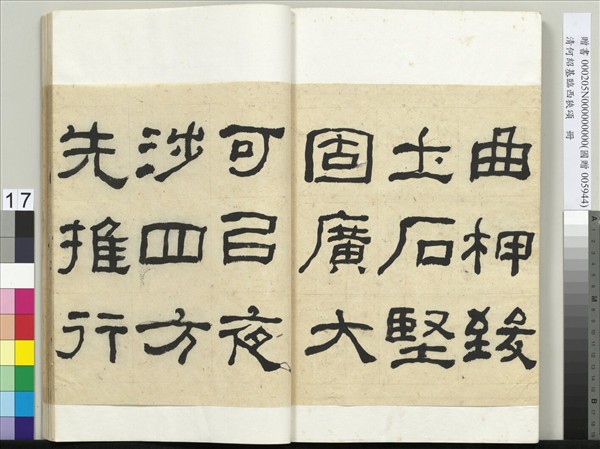 曲柙致
土石堅
固廣大
可㠯夜
涉四方
先推行
贈書 000205N000000000(國贈 005944)
清何紹基臨西狹頌 冊
17
A
M
B